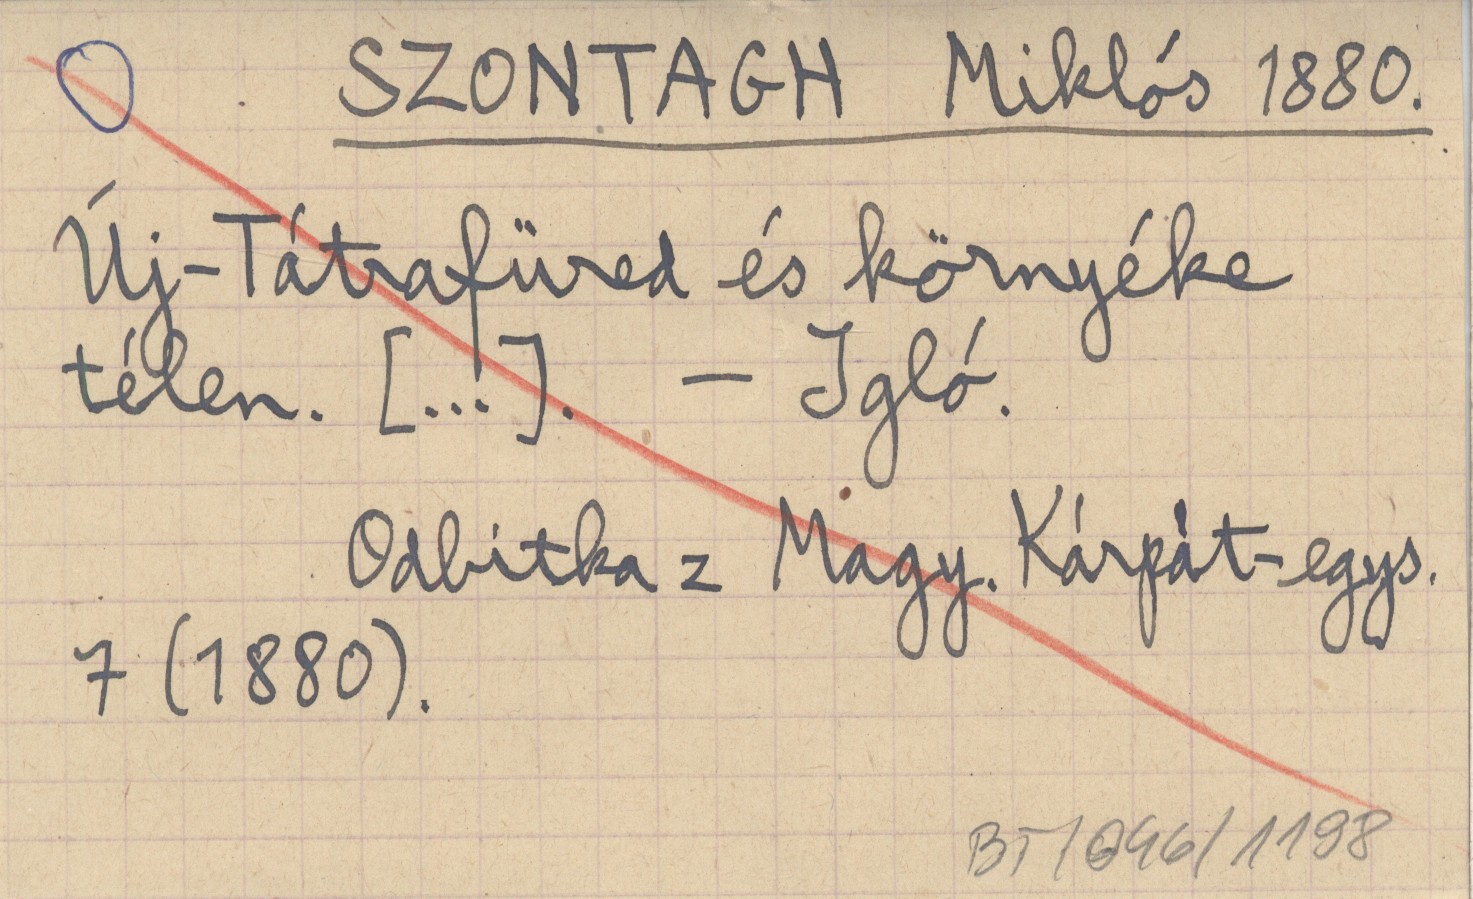 SZONTAGH Miklós 1880.
Új-Tátrafüred és környéke
télen. [...]. — Igló.
Odbitka z Magy. Kárpát-egys.
7 (1880).
BT/096/1198